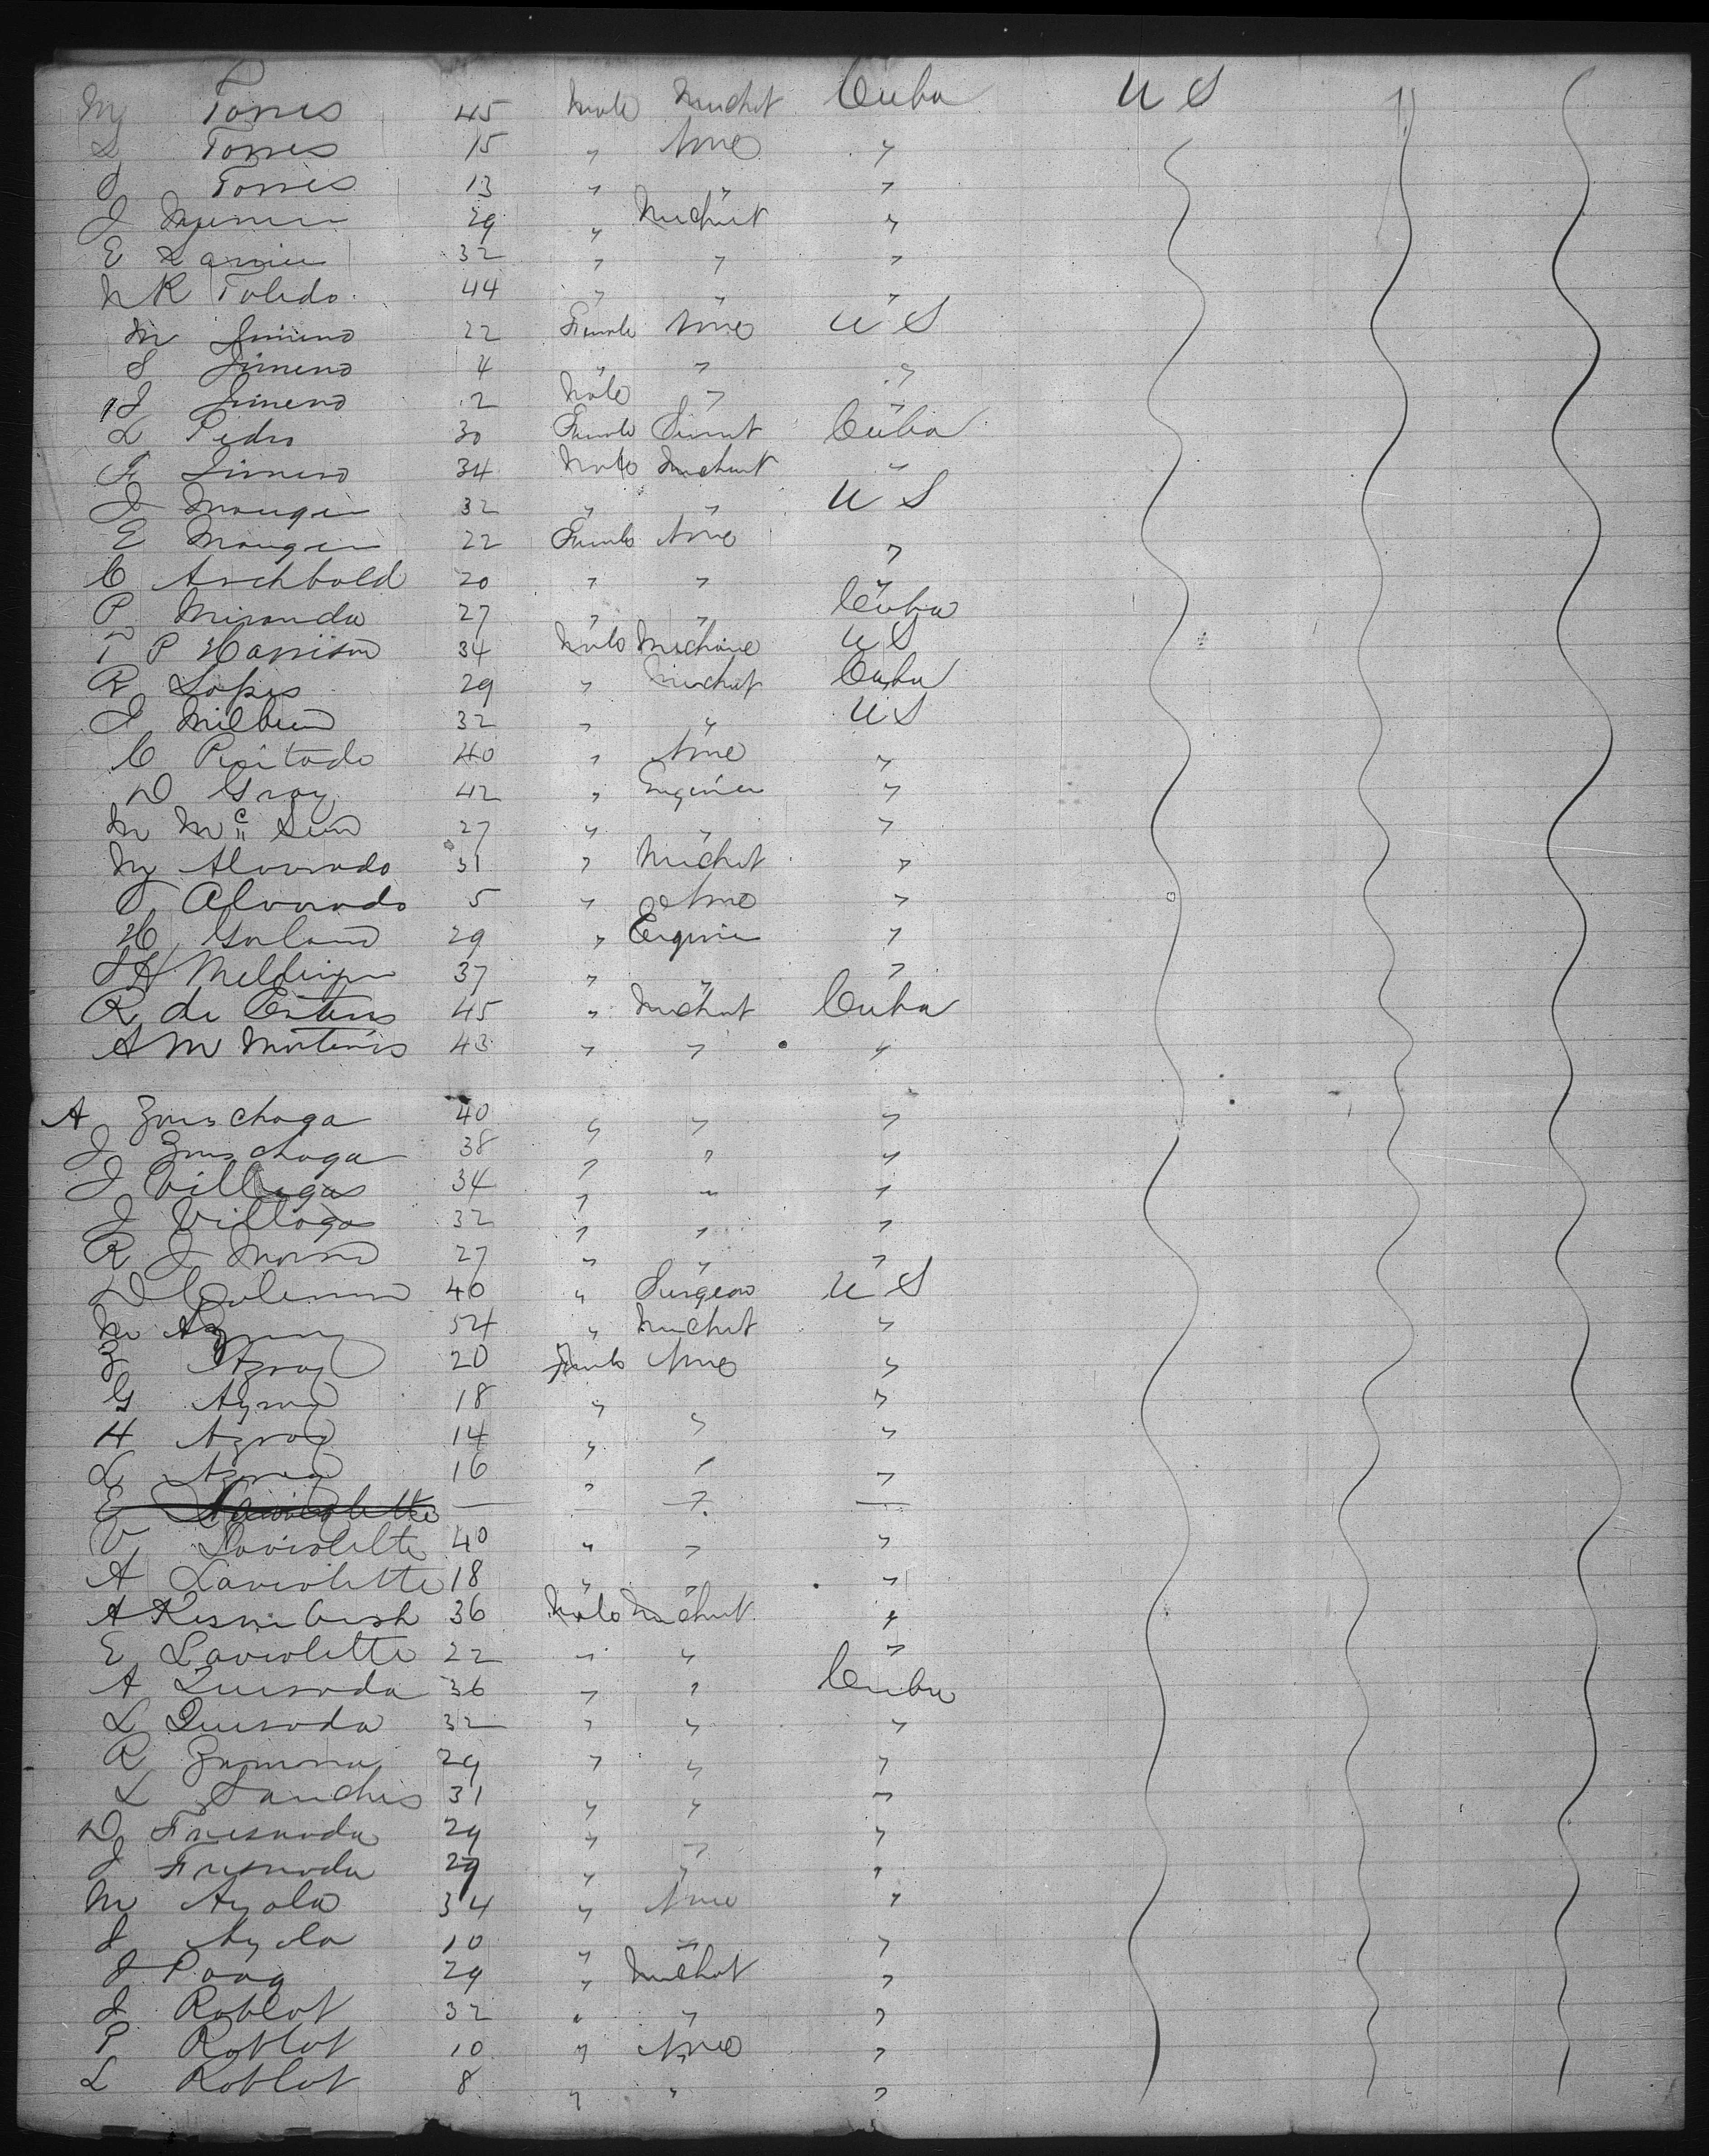 M Torres 45 Male Mercht Cuba U S "
L Torres 15 " None "
J Torres 13 " " "
J 29 " Merchnt "
E 32 " " "
N R Toledo 44 " " "
M Jimeno 22 Female None U S
S Jimeno 4 " " "
J Jimeno 2 Male " "
L Pedro 30 Female Servnt Cuba
F Jimeno 34 Male Merchant "
J Mougin 32 " " U S
E Mougin 22 Female None "
C Archbold 20 " " "
P Miranda 27 " " Cuba
T P Harrison 34 Male Mechanic U S
R Lopes 29 " Merchat Cuba
J Milburn 32 " " U S
C Peitado 40 " None "
D Gray 42 " Engineer "
M Mc 27 " " "
M Alvorado 31 " Merchat "
J Alvorado 5 " None "
H Garland 29 " Engineer "
J H 37 " " "
R de 45 " Merchnt Cuba
A M Martinis 43 " " "
A Gouschaga 40 " " "
J Gouschaga 38 " " "
J Villegas 34 " " "
J Villagas 32 " " "
R J 27 " " "
D Coleman 40 " Surgeon U S
M 54 " Merchat "
Z Azroy 20 Female None "
G 18 " " "
H Azroy 14 " " "
L 16 " " "
E Laviolette — — " —
V Laviolette 40 " " "
A Laviolette 18 " " "
A 36 Male Merchnt "
E Laviolette 22 " " "
A Quesada 36 " " Cuba
L Quesada 32 " " "
R Zamora 29 " " "
L Sanches 31 " " "
D Fresnada 29 " " "
J Fresnada 29 " " "
M Ayola 34 " None "
J Ayola 10 " " "
J 29 " Merchat "
J Roblot 32 " " "
P Roblot 10 " None "
L Roblot 8 " " "